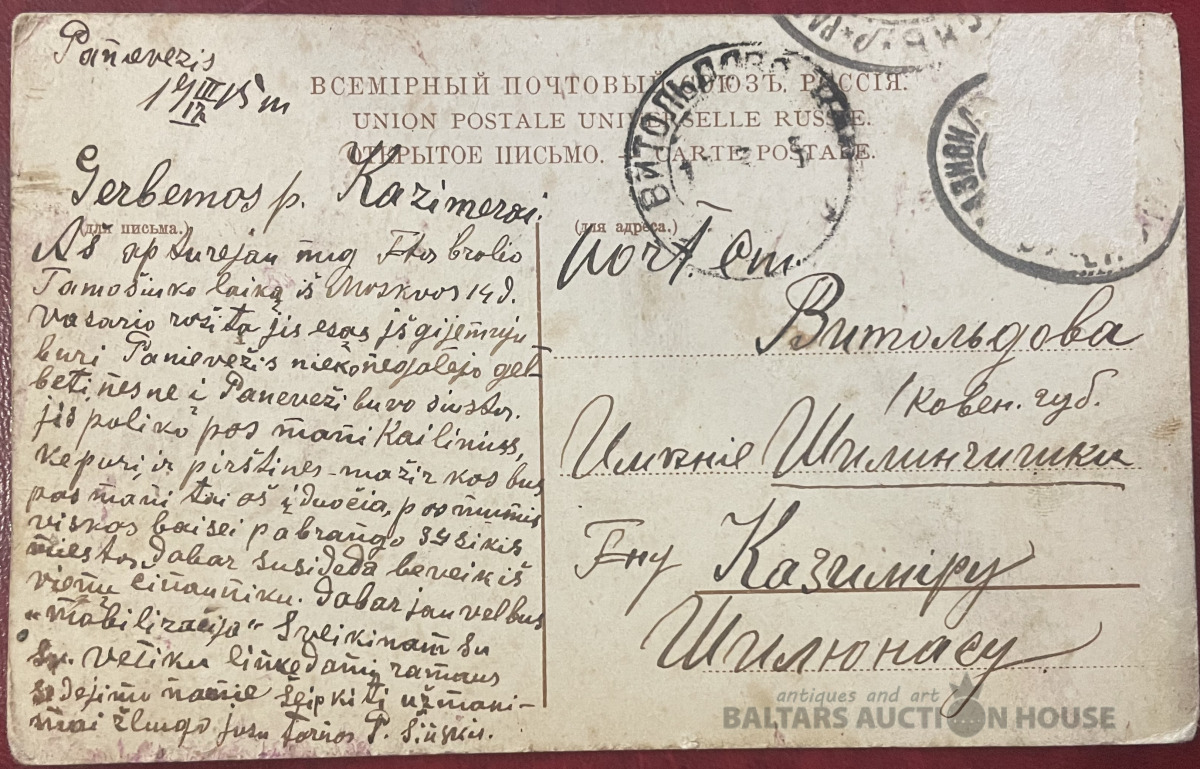 Panevezis
19 III/17 15 m
ВСЕМІРНЫЙ ПОЧТОВЫЙ СОЮЗЪ. РОССІЯ.
UNION POSTALE UNIVERSELLE RUSSIE.
ОТКРЫТОЕ ПИСЬМО. CARTE POSTALE.
ВИТОЛЬДОВО
Gerbemos p. Kazimerai.
(для письма.)
Aš ap turejau nug Jtos brolio
Tamošiuko laiką iš Moskvos 14 d.
vasario rošita jis esas išgijem
buri Panievežis nieko negalejo gel
beti, nes ne i Panevežį buvo siustas.
jis paliko pas mani Kailinius,
kepuri ir pirštines - mažir kas bus
pas mani tai aš įduočia, pas mumis
viskas baisei pabrango
miestas dabar susideda beveik iš
vienų činauniku. dabar jau vel bus
„mobilizacija" Sveikinam su
šv. Veliku linkedami ramaus
sedejimo namie šeip kiti užmani-
mai žlungo jusu tarnas P.
(для адреса.)
Витольдова
Ковен. губ.
Имѣніе Шилинчишки
Гну Казиміру
Шилюнасу
antiques and art
BALTARS AUCTION HOUSE